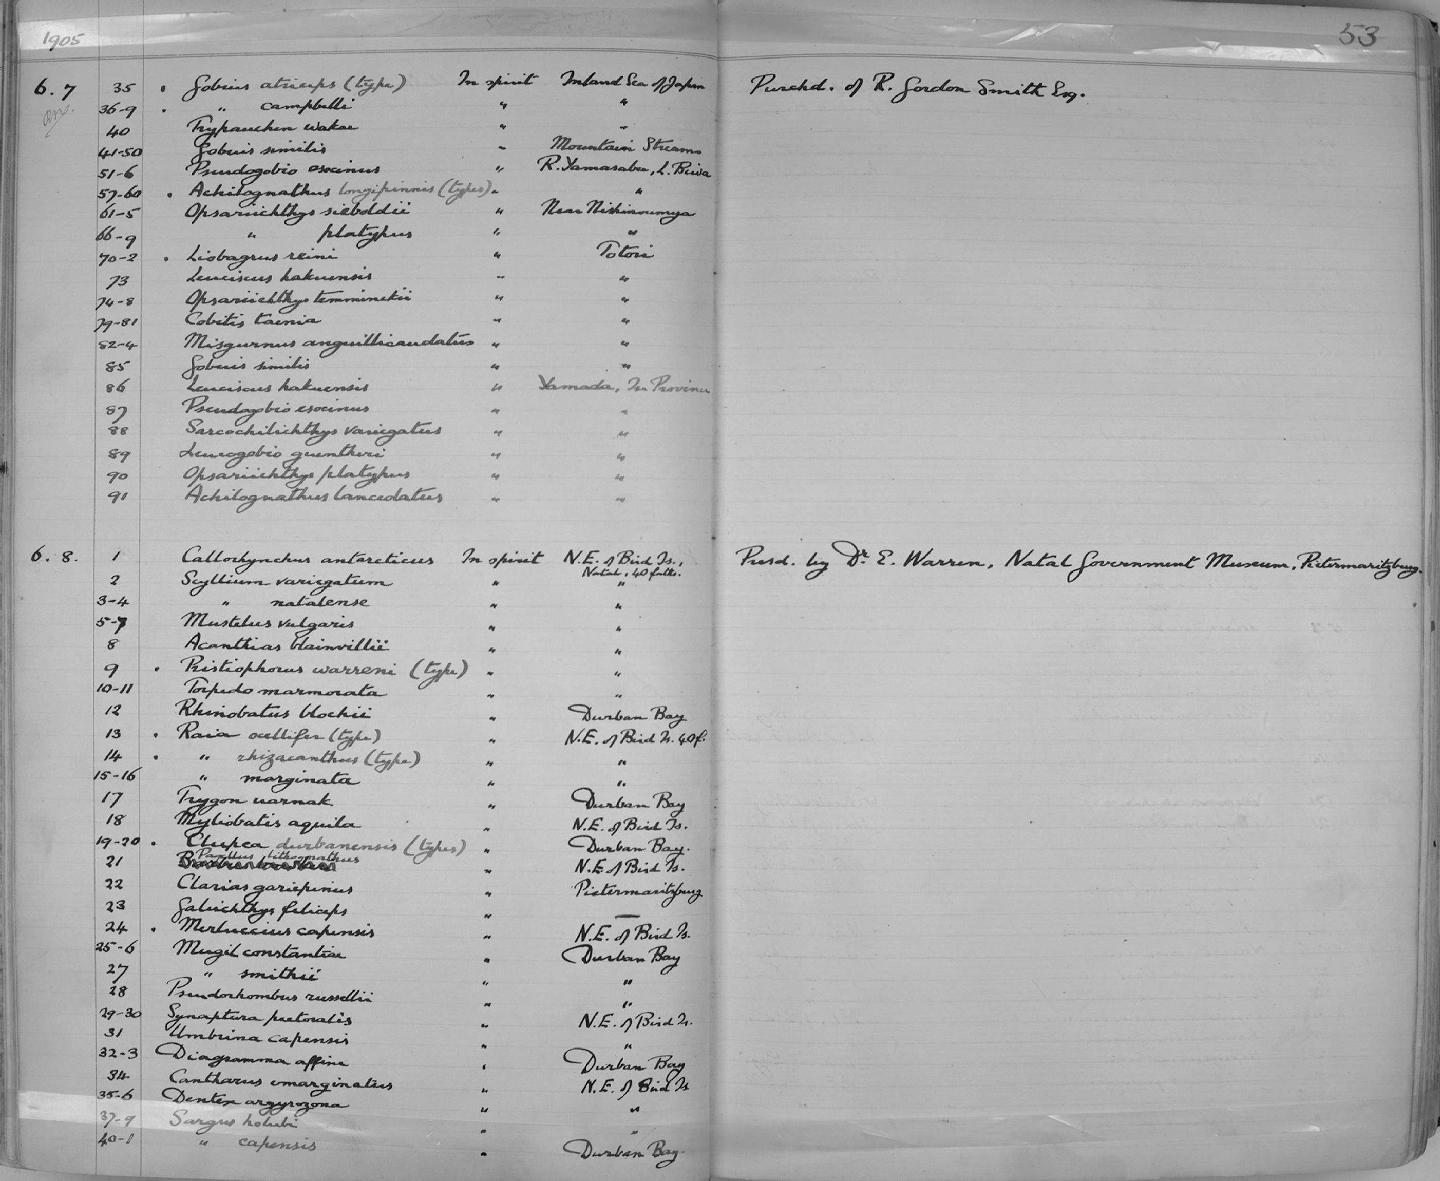 1905
53
6. 7 35 • Gobius atriceps (type) In spirit Inland Sea of Japan Purchd. of R. Gordon Smith Esq.
36-9 • " campbelli " "
40 Trypauchen wakae " "
41-50 Gobius similis " Mountain Streams
51-6 Pseudogobio esocinus " R. Yamasaba, L. Biwa
57-60 • Achilognathus longipinnis (types) " "
61-5 Opsariichthys sieboldii " Near Nishinoumya
66-9 " platypus " "
70-2 • Liobagrus reini " Totori
73 Leuciscus hakuensis " "
74-8 Opsariichthys temminckii " "
79-81 Cobitis taenia " "
82-4 Misgurnus anguillicaudatus " "
85 Gobius similis " "
86 Leuciscus hakuensis " Yamada, Ise Province
87 Pseudogobio esocinus " "
88 Sarcochilichthys variegatus " "
89 Leucogobio guentheri " "
90 Opsariichthys platypus " "
91 Achilognathus lanceolatus " "
6. 8. 1 Callorhynchus antarcticus In spirit N.E. of Bird Is., Natal, 40 faths. Presd. by Dr. E. Warren, Natal Government Museum, Pietermaritzburg.
2 Scyllium variegatum " "
3-4 " natalense " "
5-7 Mustelus vulgaris " "
8 Acanthias blainvillii " "
9 • Pristiophorus warreni (type) " "
10-11 Torpedo marmorata " "
12 Rhinobatus blochii " Durban Bay
13 • Raia ocellifer (type) " N.E. of Bird Is. 40 f.
14 • " rhizacanthus (type) " "
15-16 " marginata " "
17 Trygon uarnak " Durban Bay
18 Myliobatis aquila " N.E. of Bird Is.
19-20 • Clupea durbanensis (types) " Durban Bay.
21 Pagellus lithognathus " N.E. of Bird Is.
22 Clarias gariepinus " Pietermaritzburg
23 Galeichthys feliceps " —
24 • Merluccius capensis " N.E. of Bird Is.
25-6 Mugil constantiae " Durban Bay
27 " smithii " "
28 Pseudorhombus russellii " "
29-30 Synaptura pectoralis " N.E. of Bird Is.
31 Umbrina capensis " "
32-3 Diagramma affine " Durban Bay
34 Cantharus emarginatus " N.E. of Bird Is
35-6 Dentex argyrozona " "
37-9 Sargus holubi " "
40-1 " capensis " Durban Bay